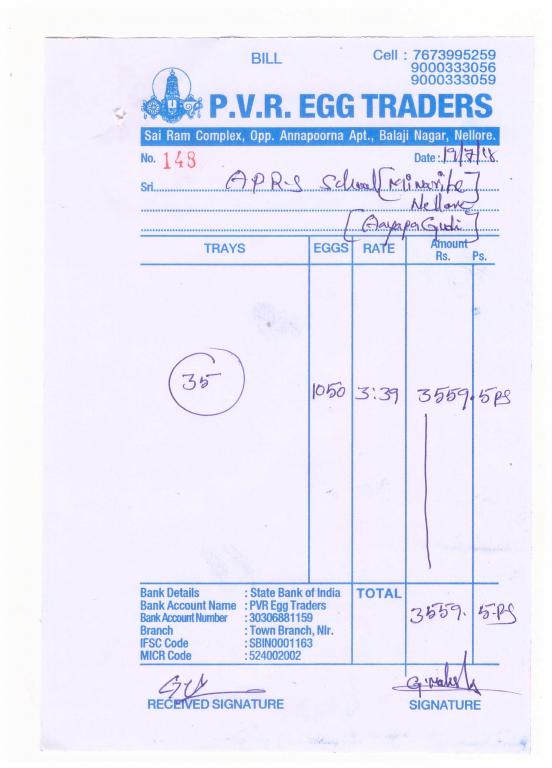 BILL
Cell : 7673995259
9000333056
9000333059
P.V.R. EGG TRADERS
Sai Ram Complex, Opp. Annapoorna Apt., Balaji Nagar, Nellore.
No. 148 Date: 19/7/18
Sri. APRS School [Minarite]
Nellore
[Aayapa Gudi]
TRAYS EGGS RATE Amount
Rs. Ps.
35 1050 3:39 3559. 5 ps
Bank Details : State Bank of India TOTAL
Bank Account Name : PVR Egg Traders 3559. 5-ps
Bank Account Number : 30306881159
Branch : Town Branch, Nlr.
IFSC Code : SBIN0001163
MICR Code : 524002002
RECEIVED SIGNATURE SIGNATURE